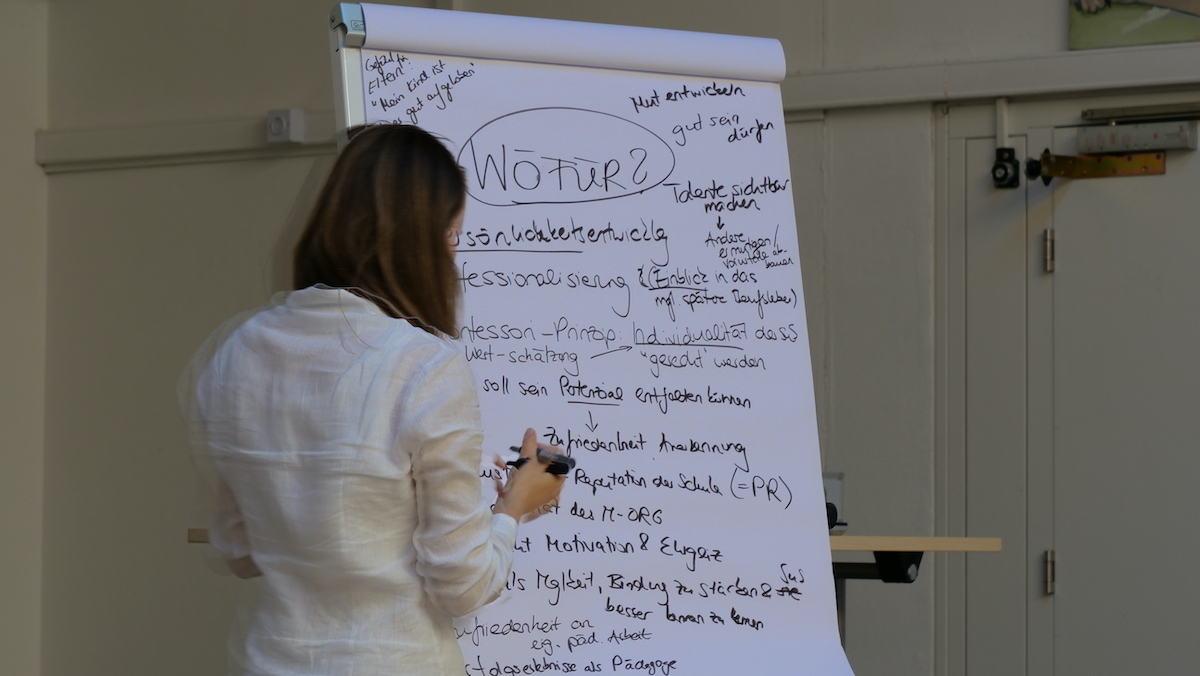 Gefühl für
Eltern:
"Mein Kind ist
gut aufgehoben"
Mut entwickeln
gut sein
dürfen
WOFÜR?
Talente sichtbar
machen
↓
Andere
ermutigen/
Vorurteile ab-
bauen
sönlichkeitsentwicklg
fessionalisierung & (Einblick in das
mgl. spätere Berufsleben)
ntessori-Prinzip: Individualität des S
Wert-schätzung → "gerecht" werden
soll sein Potenzial entfalten können
↓
Zufriedenheit Anerkennung
Reputation der Schule (=PR)
des M-ORG
Motivation & Ehrgeiz
als Mglkeit, Bindung zu stärken & SuS
besser kennen zu lernen
ufriedenheit an
eig. päd. Arbeit
folgserlebnisse als Pädagoge